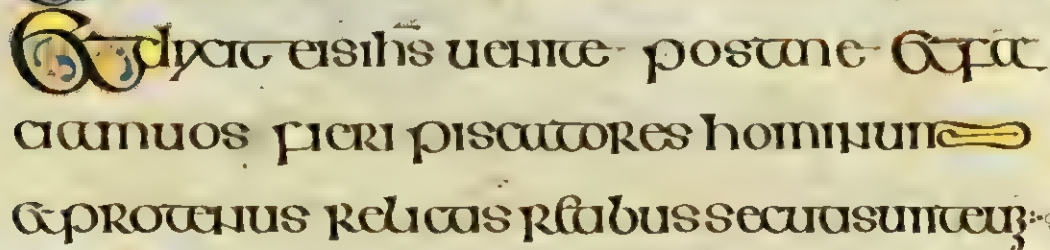 Et dixit eis ihs uenite post me & fa
ciam uos fieri piscatores hominum
& protenus relictis r&iabus secuti sunt eum